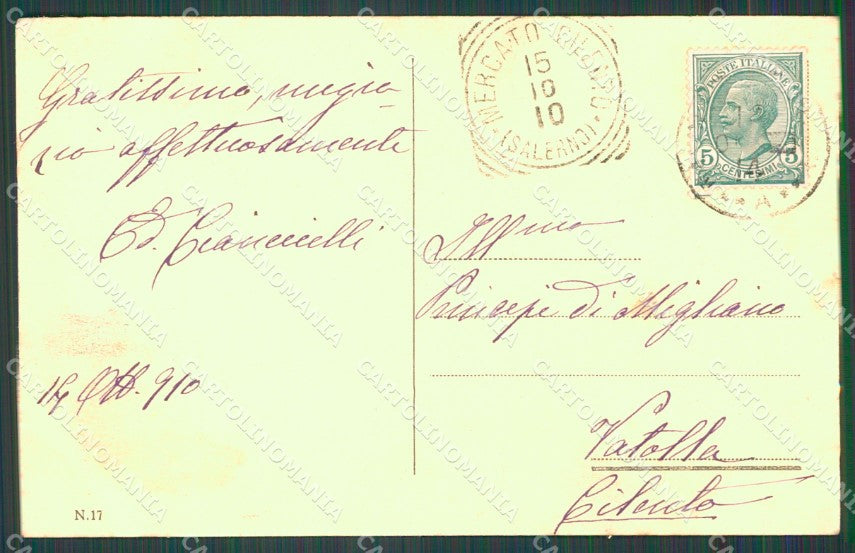 Gratissimo, ringra-
zio affettuosamente
Ed.
Ott. 910
N.17
MERCATO CILENTO
15
10
10
(SALERNO)
POSTE ITALIANE
5 5
CENTESIMI
Ill mo
Principe di Migliano
Vatolla
Cilento
CARTOLINOMANIA